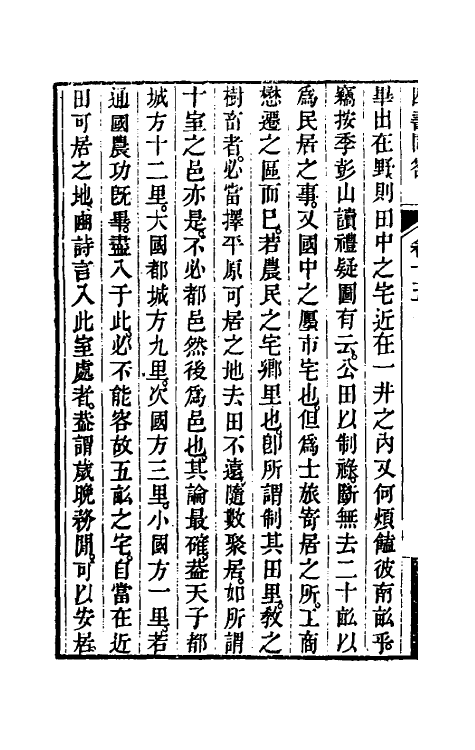 畢出在野則田中之宅近在一井之內又何煩饁彼南畝乎
竊按季彭山讀禮疑圖有云公田以制祿斷無去二十畝以
爲民居之事又國中之廛市宅也但爲士旅寄居之所工商
懋遷之區而已若農民之宅鄉里也卽所謂制其田里教之
樹畜者必當擇平原可居之地去田不遠隨數聚居如所謂
十室之邑亦是不必都邑然後爲邑也其論最確葢天子都
城方十二里大國都城方九里次國方三里小國方一里若
通國農功旣畢盡入于此必不能容故五畝之宅自當在近
田可居之地豳詩言入此室處者葢謂歲晚務閒可以安居